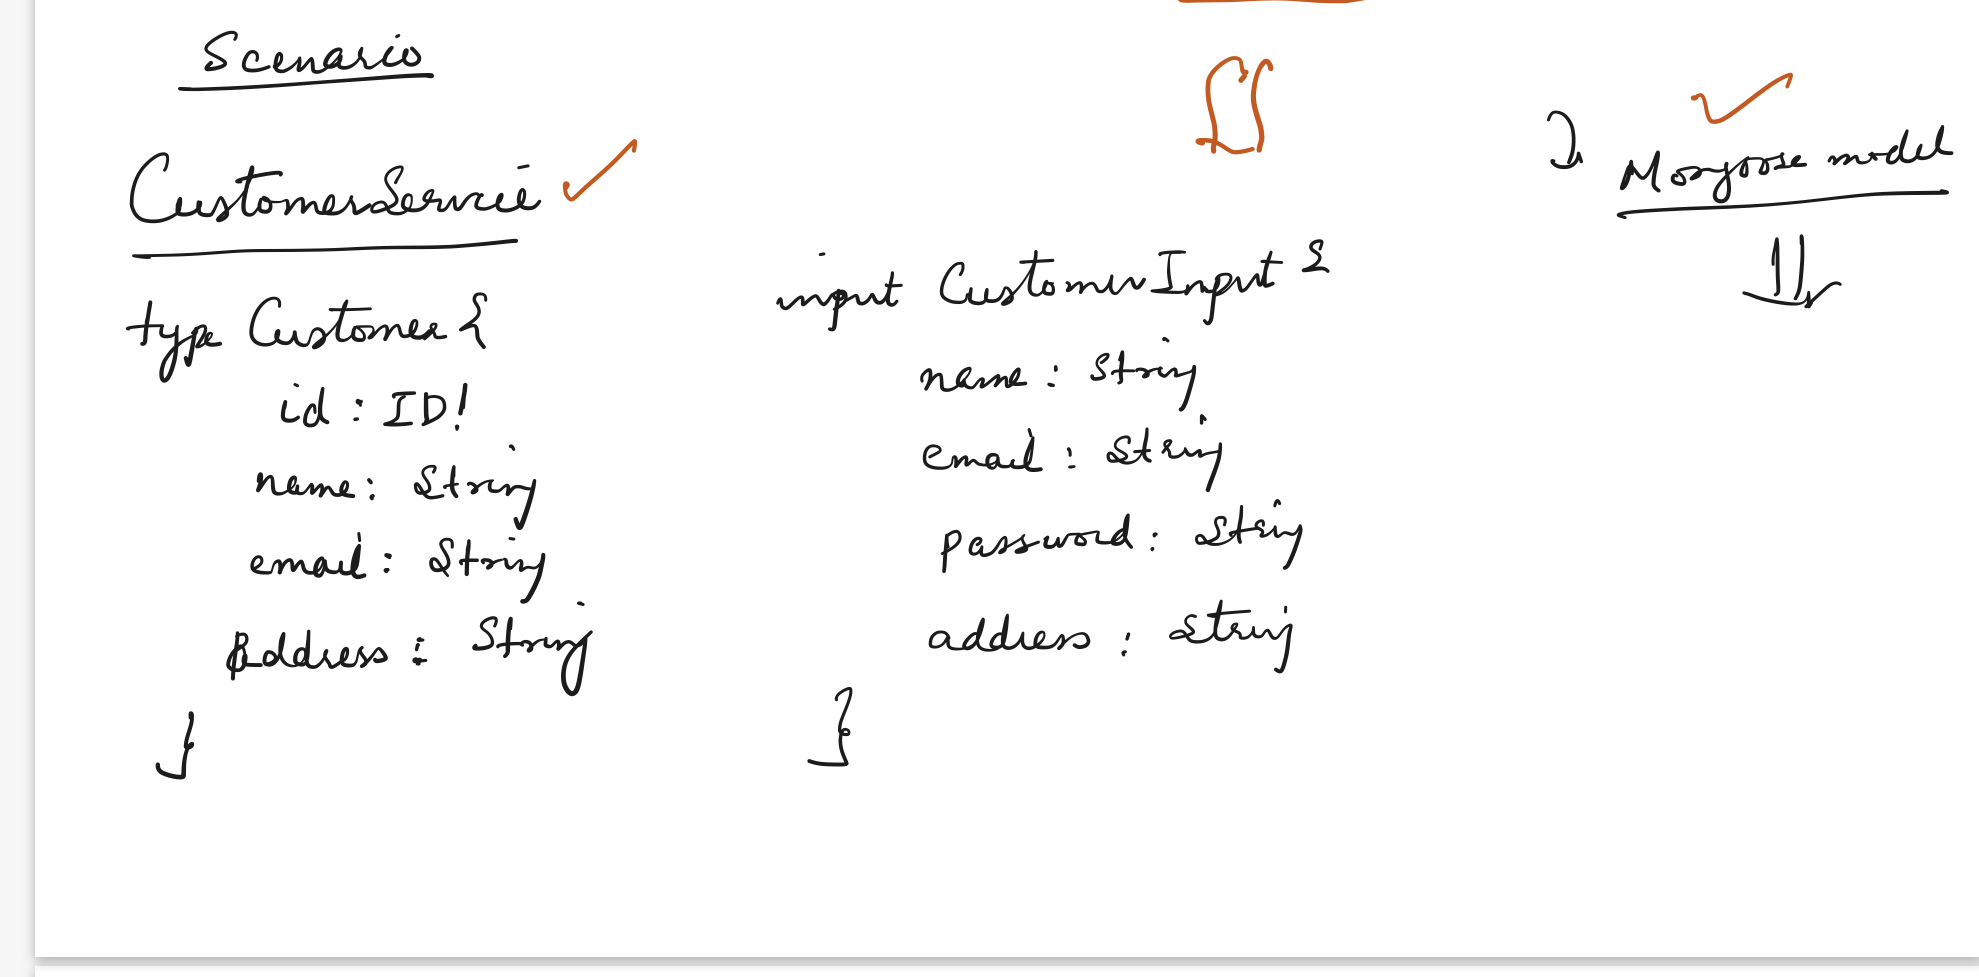 Scenario
CustomerService
type Customer {
id : ID!
name : String
email : String
Address : String
}
input CustomerInput {
name : String
email : String
password : String
address : String
}
2. Mongoose model